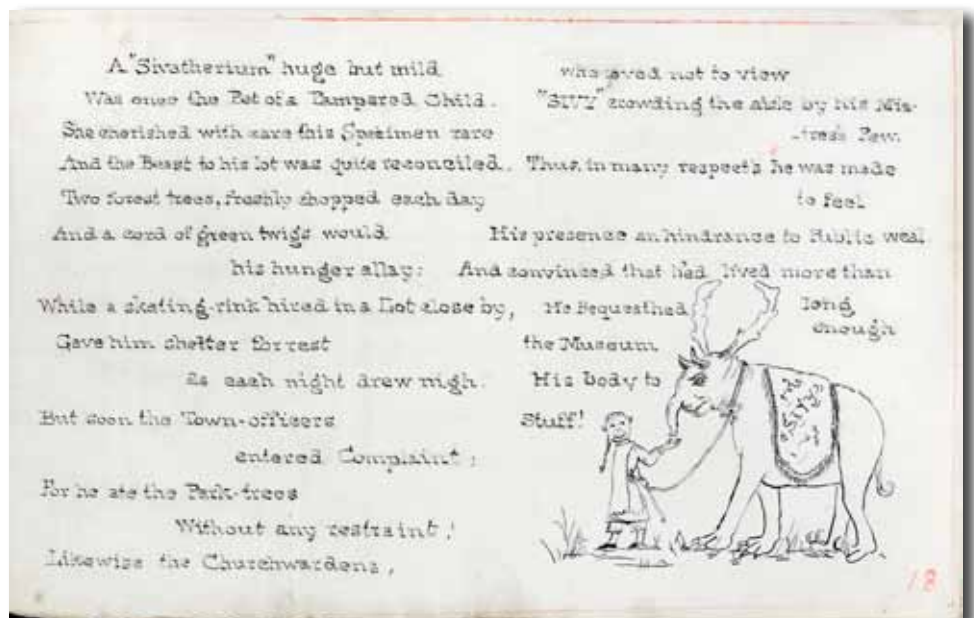 A "Sivatherium" huge but mild
Was once the Pet of a Pampered Child.
She cherished with care this Specimen rare
And the Beast to his lot was quite reconciled.
Two forest trees, freshly chopped each day
And a cord of green twigs would
his hunger allay:
While a skating-rink hired in a Lot close by,
Gave him shelter for rest
as each night drew nigh.
But soon the Town-officers
entered Complaint;
For he ate the Park-trees
Without any restraint!
Likewise the Churchwardens,
who loved not to view
"SIVY" crowding the aisle by his Mis-
-tress Pew.
Thus, in many respects he was made
to feel
His presence an hindrance to Public weal
And convinced that he'd lived more than
long
enough
He Bequeathed
the Museum
His body to
Stuff!
18